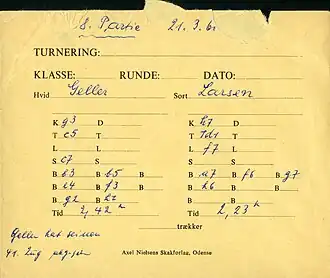 8. Partie 21. 3. 61
TURNERING:
KLASSE: RUNDE: DATO:
Hvid Geller Sort Larsen
K g3 D K h7 D
T c5 T T Td1 T
L L L f7 L
S c7 S S S
B b3 B b5 B B a7 B f6 B g7
B e4 B f3 B B h6 B B
B g2 B h2 B B
Tid 2,42 h Tid 2,23 h
trækker
Geller hat seinen
41. Zug
Axel Nielsens Skakforlag, Odense